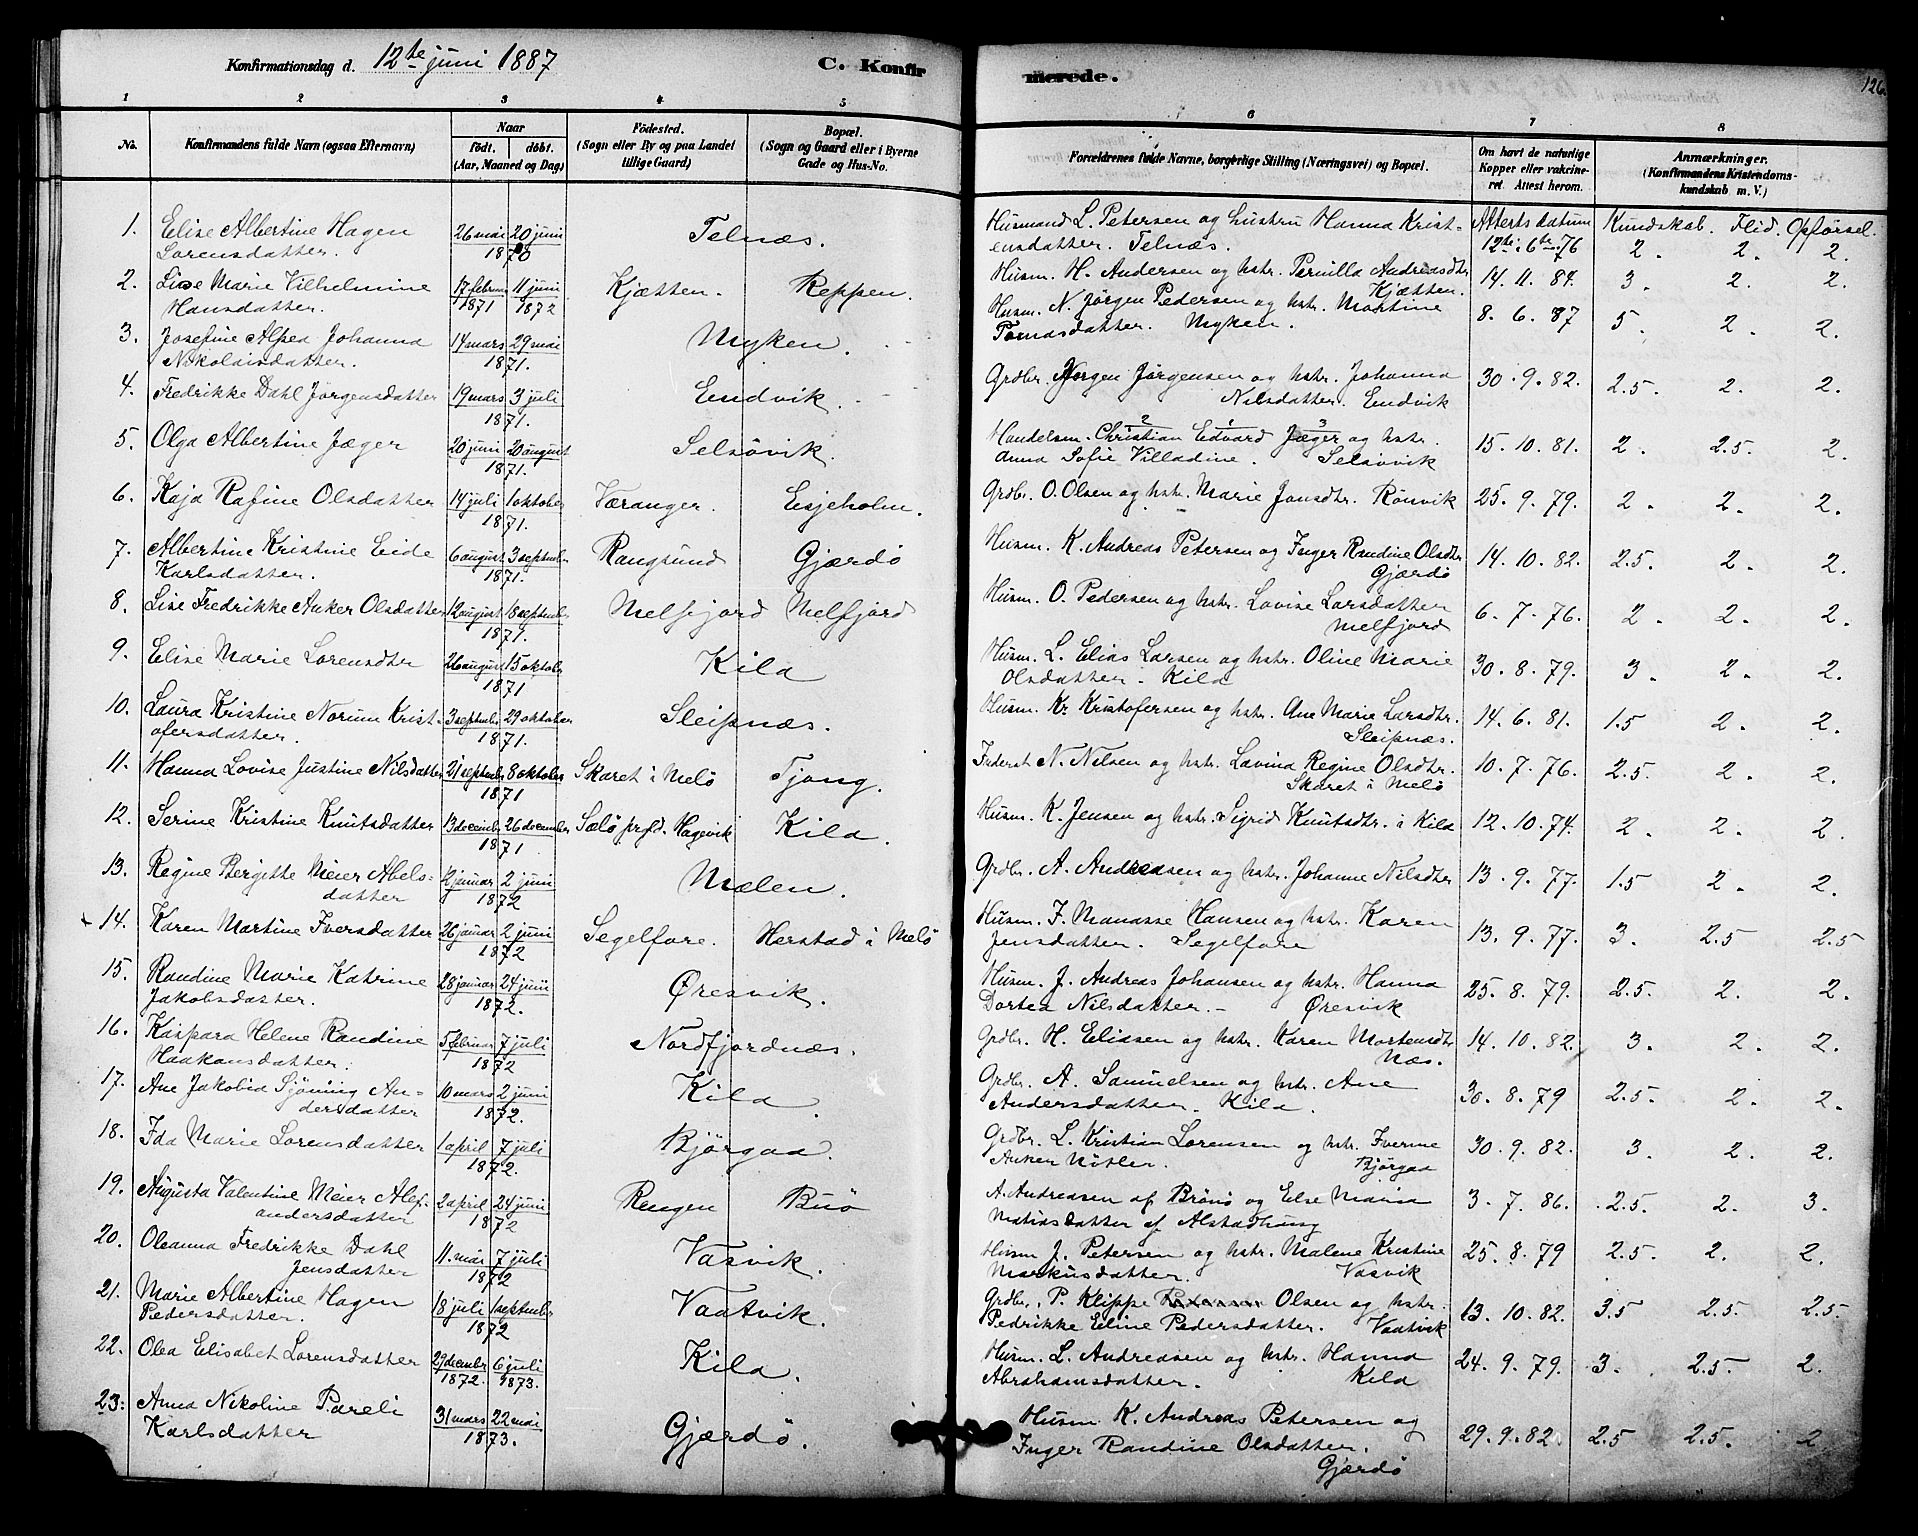 Konfirmationsdag d. 12te juni 1887 C. Konfirmerede. 126.
1 2 3 4 5 6 7 8
No.
Konfirmandens fulde Navn (ogsaa Efternavn)
Naar
født. døbt.
(Aar, Maaned og Dag)
Fødested.
(Sogn eller By og paa Landet
tillige Gaard)
Bopæl.
(Sogn og Gaard eller i Byerne
Gade og Hus-No.
Forældrenes fulde Navne, borgerlige Stilling (Næringsvei) og Bopæl.
Om havt de naturlige
Kopper eller vakcineret. Attest herom.
Anmærkninger.
(Konfirmandens Kristendomskundskab m. V.)
Attests datum Kundskab. Flid. Opførsel.
1. Elise Albertine Hagen Lorensdatter. 26 mai 20 juni 1870 Telnæs. Husmand L. Petersen og hustru Hanna Kristensdatter. Telnæs. 12te 6te 76 2. 2. 2.
2. Lise Marie Vilhelmine Hansdatter. 17 februar 1871 11 juni 1872 Kjætten. Reppen. Husm. H. Andersen og hstr. Pernilla Andreasdtr Kjætten. 14. 11. 84. 3. 2. 2.
3. Josefine Alfea Johanna Nikolaisdatter. 14 mars 29 mai 1871. Myken. Husm. N. Jørgen Pedersen og hstr. Martine Tomasdatter. Myken. 8. 6. 87 5. 2. 2.
4. Fredrikke Dahl Jørgensdatter 19 mars 3 juli 1871. Eendvik. Grdbr. Jørgen Jørgensen og hstr. Johanna Nilsdatter. Eendvik 30. 9. 82. 2.5. 2. 2.
5. Olga Albertine Jæger 20 juni 20 august 1871. Selsøvik. Handelsm. Christian Edvard Jæger og hstr. Anna Sofie Villadine. Selsøvik 2 1 3 15. 10. 81. 2. 2.5. 2.
6. Kaja Rafine Olsdatter 14 juli 1 oktober 1871. Væranger. Esjeholm. Grdbr. O. Olsen og hstr. Marie Jonsdtr. Rønvik 25. 9. 79. 2. 2. 2.
7. Albertine Kristine Eide Karlsdatter. 6 august 3 september 1871. Rangsund Gjærdø Husm. K. Andreas Petersen og Inger Randine Olsdtr Gjærdø 14. 10. 82. 2.5. 2. 2.
8. Lise Fredrikke Anker Olsdatter 12 august 18 september 1871. Melfjord Melfjord Husm. O. Pedersen og hstr. Lovise Larsdatter Melfjord 6. 7. 76. 2. 2. 2.
9. Elise Marie Lorensdtr 26 august 15 oktober 1871 Kila Husm. L. Elias Larsen og hstr. Oline Marie Olsdatter. Kila 30. 8. 79. 3. 2. 2.
10. Laura Kristine Norum Kristofersdatter. 3 september 29 oktober 1871. Sleipnæs. Husm. Kr. Kristofersen og hstr. Ane Marie Larsdtr. Sleipnæs. 14. 6. 81. 1.5 2. 2.
11. Hanna Lovise Justine Nilsdatter 21 september 8 oktober 1871 Skaret i Melø Tjong. Inderst N. Nilsen og hstr. Lavina Regine Olsdtr. Skaret i Melø 10. 7. 76. 2.5. 2. 2.
12. Serine Kristine Knutsdatter 13 december 26 december 1871 Sælø prgld. Hagevik Kila. Husm. K. Jensen og hstr. Sigrid Knutsdtr. i Kila 12. 10. 74. 2. 2. 2.
13. Regine Bergitte Meier Abelsdatter 12 januar 2 juni 1872 Mælen. Grdbr. A. Andreasen og hstr. Johanne Nilsdtr 13. 9. 77. 1.5 2. 2.
14. Karen Martine Iversdatter 26 januar 2 juni 1872 Segelfore. Herstad i Melø Husm. I. Manasse Hansen og hstr. Karen Jensdatter. Segelfore 13. 9. 77. 3. 2.5 2.5
15. Randine Marie Katrine Jakobsdatter. 28 januar 24 juni 1872. Øresvik. Husm. J. Andreas Johansen og hstr. Hanna Dortea Nilsdatter. Øresvik 25. 8. 79. 2.5. 2. 2.
16. Kaspara Helene Randine Haakansdatter. 5 februar 7 juli 1872 Nordfjordnæs. Grdbr. H. Eliasen og hstr. Karen Mortensdtr Næs. 14. 10. 82. 3. 2. 2.
17. Ane Jakobia Sjøning Andersdatter 10 mars 2 juni 1872. Kila. Grdbr. A. Samuelsen og hstr. Ane Andersdatter. Kila. 30. 8. 79 2.5. 2. 2.
18. Ida Marie Lorensdatter 1 april 7 juli 1872. Bjørgaa. Grdbr. L. Kristian Lorensen og hstr. Iverine Anker Nøsler. Bjørgaa 30. 9. 82. 3. 2. 2.
19. Augusta Valentine Meier Alexandersdatter 2 april 24 juni 1872 Rengen Buø A. Andreasen af Brønø og Else Maria Matiasdatter af Alstadhaug 3. 7. 86. 2.5. 2. 3.
20. Oleanna Fredrikke Dahl Jensdatter 11. mai 7 juli 1872 Vasvik. Husm J. Petersen og hstr. Malene Kristine Markusdatter. Vasvik 25. 8. 79 2.5. 2. 2
21. Marie Albertine Hagen Pedersdatter. 18 juli 1 september 1872 Vaatvik. Grdbr. P. Klippe Olsen og hstr. Pedrikke Eline Pedersdatter. Vaatvik 13. 10. 82. 3.5 2.5. 2.5.
22. Olea Elisabet Lorensdatter 29 december 1872. 6 juli 1873. Kila. Husm. L. Andreasen og hstr. Hanna Abrahamsdatter. Kila 24. 9. 79. 3. 2.5. 2.
23. Anna Nikoline Pareli Karlsdatter 31 mars 22 mai 1873. Gjærdø. Husm K. Andreas Petersen og Inger Randine Olsdatter. Gjærdø 29. 9. 82. 2.5 2.5. 2